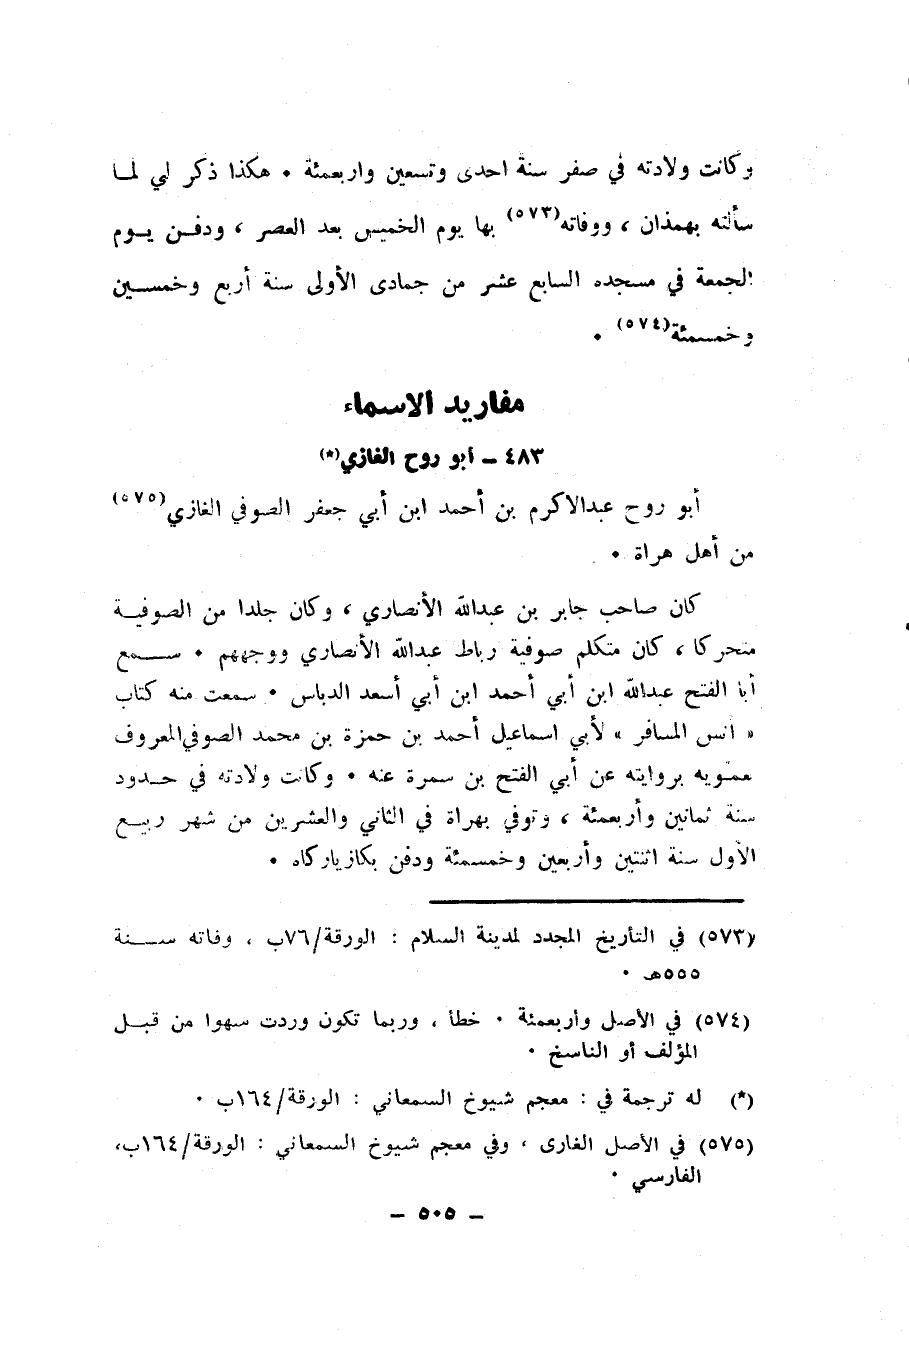 وكانت ولادته في صفر سنة احدى وتسعين واربعمئة • هكذا ذكر لي لما
سألته بهمذان ، ووفاته(٥٧٣) بها يوم الخميس بعد العصر ، ودفن يوم
الجمعة في مسجده السابع عشر من جمادى الأولى سنة أربع وخمسين
وخمسمئة(٥٧٤) •
مفاريد الاسماء
٤٨٣ – أبو روح الغازي(*)
أبو روح عبدالاكرم بن أحمد ابن أبي جعفر الصوفي الغازي(٥٧٥)
من أهل هراة •
كان صاحب جابر بن عبدالله الأنصاري ، وكان جلدا من الصوفية
متحركا ، كان متكلم صوفية رباط عبدالله الأنصاري ووجههم • سمع
أبا الفتح عبدالله ابن أبي أحمد ابن أبي أسعد الدباس • سمعت منه كتاب
« أنس المسافر » لأبي اسماعيل أحمد بن حمزة بن محمد الصوفي المعروف
بعمويه بروايته عن أبي الفتح بن سمرة عنه • وكانت ولادته في حدود
سنة ثمانين وأربعمئة ، وتوفي بهراة في الثاني والعشرين من شهر ربيع
الأول سنة اثنتين وأربعين وخمسمئة ودفن بكازياركاه •
(٥٧٣) في التأريخ المجدد لمدينة السلام : الورقة/٧٦ب ، وفاته سنة
٥٥٥هـ •
(٥٧٤) في الأصل وأربعمئة • خطأ ، وربما تكون وردت سهوا من قبل
المؤلف أو الناسخ •
(*) له ترجمة في : معجم شيوخ السمعاني : الورقة/١٦٤ب •
(٥٧٥) في الأصل الغارى ، وفي معجم شيوخ السمعاني : الورقة/١٦٤ب،
الفارسي •
– ٥٠٥ –